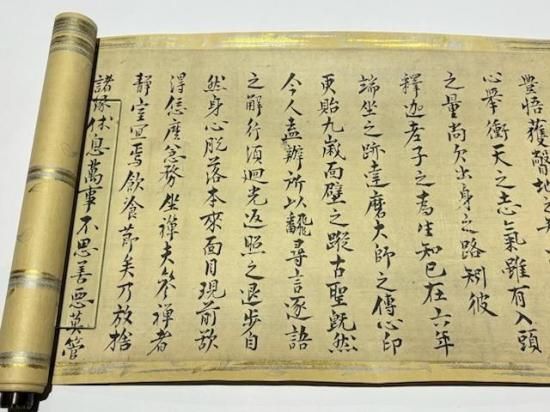 豊悟獲瞥地之
心擧衝天之志氣雖有入頭
之量尚欠出身之路矧彼
釋迦老子之為生知已在六年
端坐之跡達磨大師之傳心印
更貽九歳面壁之蹤古聖既然
今人盍辦所以飜尋言逐語
之解行須迴光返照之退歩自
然身心脱落本来面目現前欲
得恁麼急務坐禪夫参禪者
静室宜焉飲飡節矣乃放捨
諸縁休息萬事不思善悪莫管